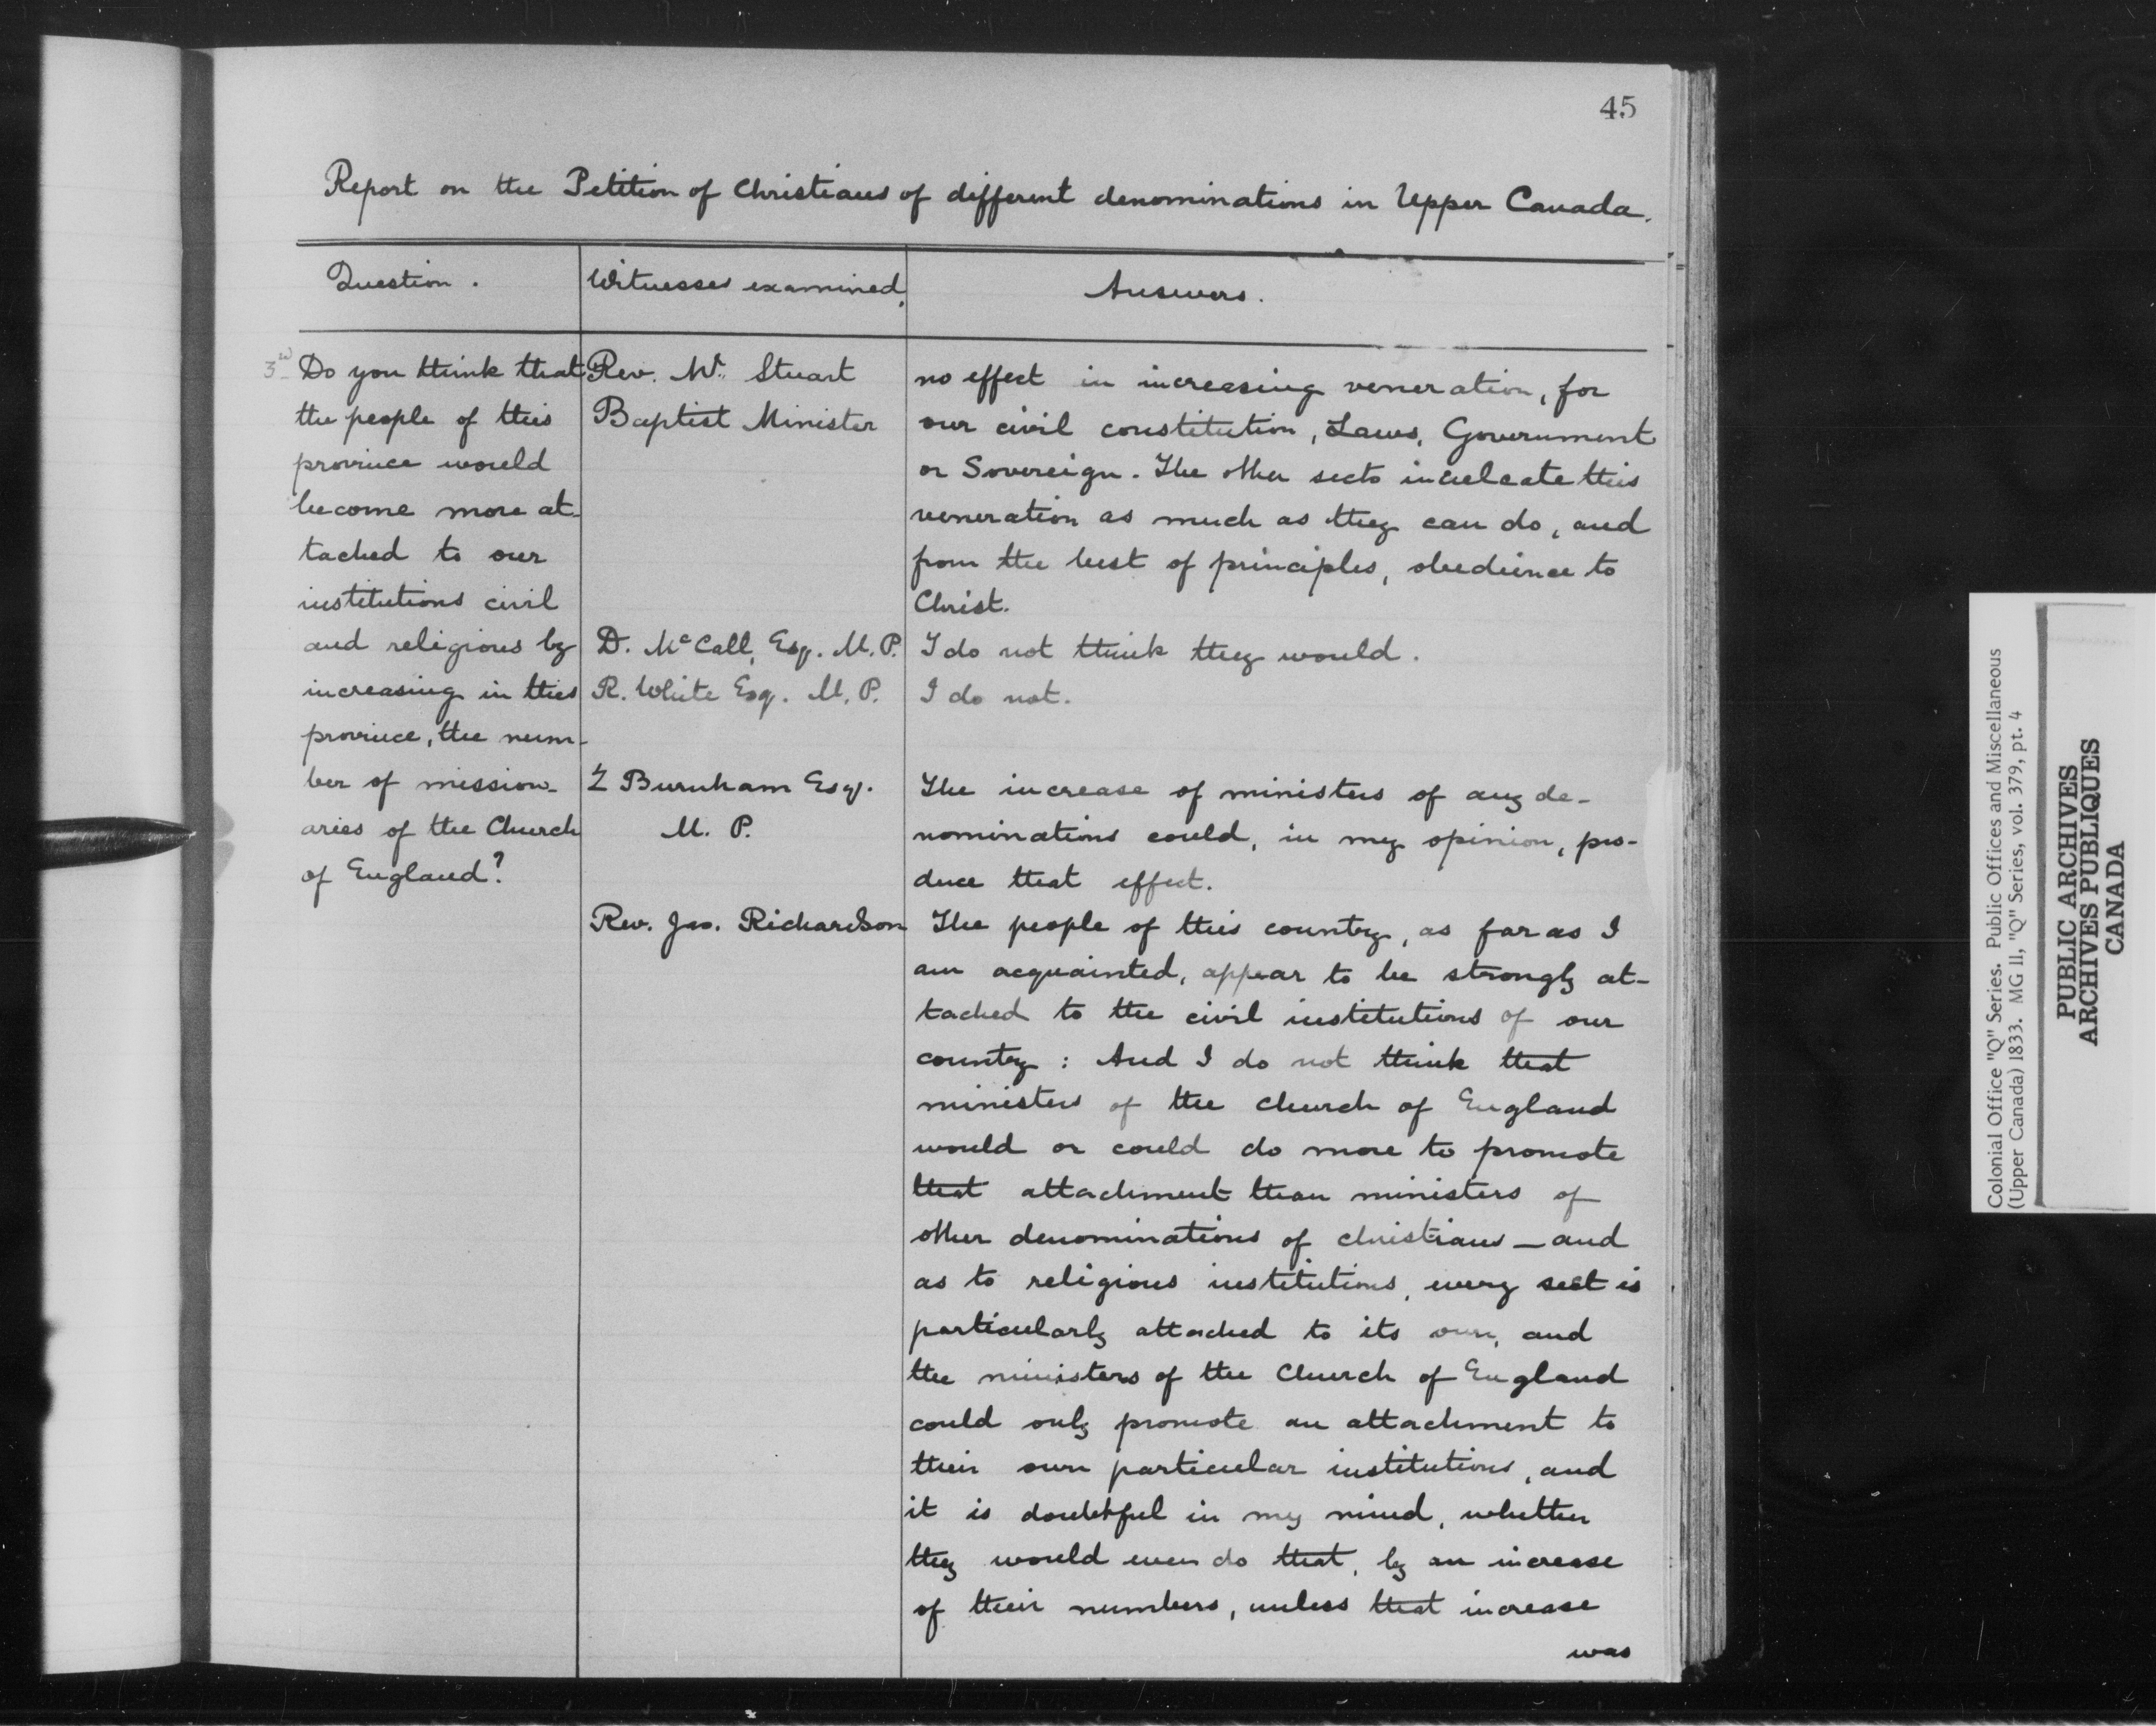 45
Report on the Petition of Christians of different denominations in Upper Canada.
Question.
Witnesses examined,
Answers.
Do you think that
the people of this
province would
become more at-
tached to our
institutions civil
and religious by
increasing in this
province, the num-
ber of mission-
aries of the Church
of England?
Rev. Mr. Stuart
Baptist Minister
D. McCall, Esq. M.P.
R. White Esq. M.P.
Z Burnham Esq.
M. P.
Rev. Jas. Richardson
no effect in increasing veneration, for
our civil constitution, Laws, Government
or Sovereign. The other sects inculcate this
veneration as much as they can do, and
from the best of principles, obedience to
Christ.
I do not think they would.
I do not.
The increase of ministers of any de-
nominations could, in my opinion, pro-
duce that effect.
The people of this country, as far as I
am acquainted, appear to be strongly at-
tached to the civil institutions of our
country: And I do not think that
ministers of the church of England
would or could do more to promote
that attachment than ministers of
other denominations of christians — and
as to religious institutions, every sect is
particularly attached to its own, and
the ministers of the Church of England
could only promote an attachment to
their own particular institutions, and
it is doubtful in my mind, whether
they would even do that, by an increase
of their numbers, unless that increase
was
Colonial Office "Q" Series. Public Offices and Miscellaneous
(Upper Canada) 1833. MG 11, "Q" Series, vol. 379, pt. 4
PUBLIC ARCHIVES
ARCHIVES PUBLIQUES
CANADA